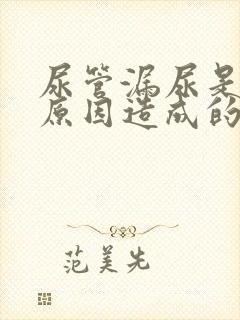 尿管漏尿是
原因造成的
范美先